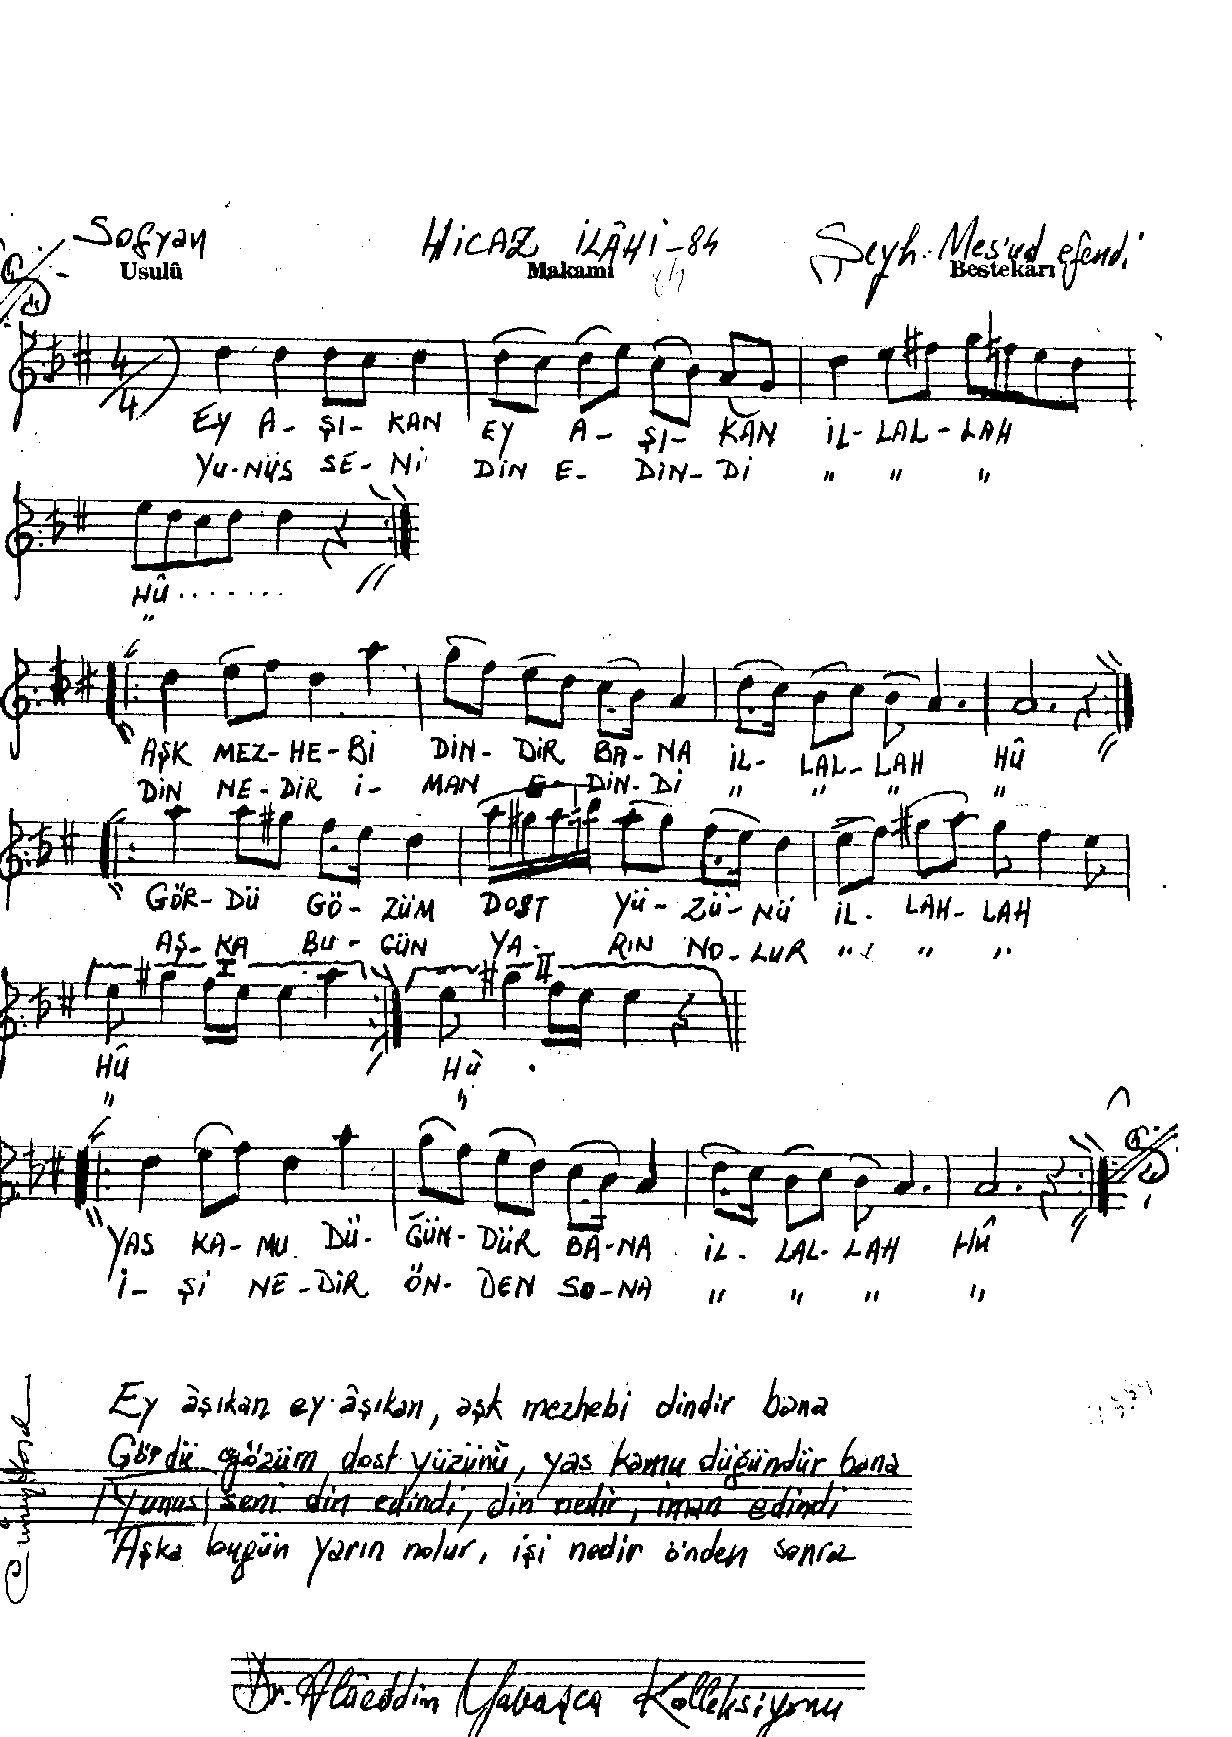 Sofyan HİCAZ İLÂHİ-84 Şeyh Mes'ud efendi
Usulü Makamı Bestekârı
4/4
EY A- ŞI- KAN EY A- ŞI- KAN İL- LAL- LAH
YU-NUS SE- Nİ DİN E- DİN- Dİ " " "
HÛ.......
"
AŞK MEZ-HE-Bİ DİN- DİR BA-NA İL- LAL-LAH HÛ
DİN NE-DİR İ- MAN E- DİN-Dİ " " " "
GÖR-DÜ GÖ- ZÜM DOST YÜ-ZÜ-NÜ İL- LAH-LAH
AŞ-KA BU-GÜN YA- RIN NO-LUR " " "
I II
HÛ HÛ
" "
YAS KA-MU DÜ- ĞÜN-DÜR BA-NA İL- LAL-LAH HÛ
İ- Şİ NE-DİR ÖN- DEN SO-NA " " " "
Ey âşıkan ey âşıkan, aşk mezhebi dindir bana
Gördü gözüm dost yüzünü, yas kamu düğündür bana
Yunus seni din edindi, din nedir, iman edindi
Aşka bugün yarın nolur, işi nedir önden sonra
Dr. Alâeddin Yavaşca Kolleksiyonu